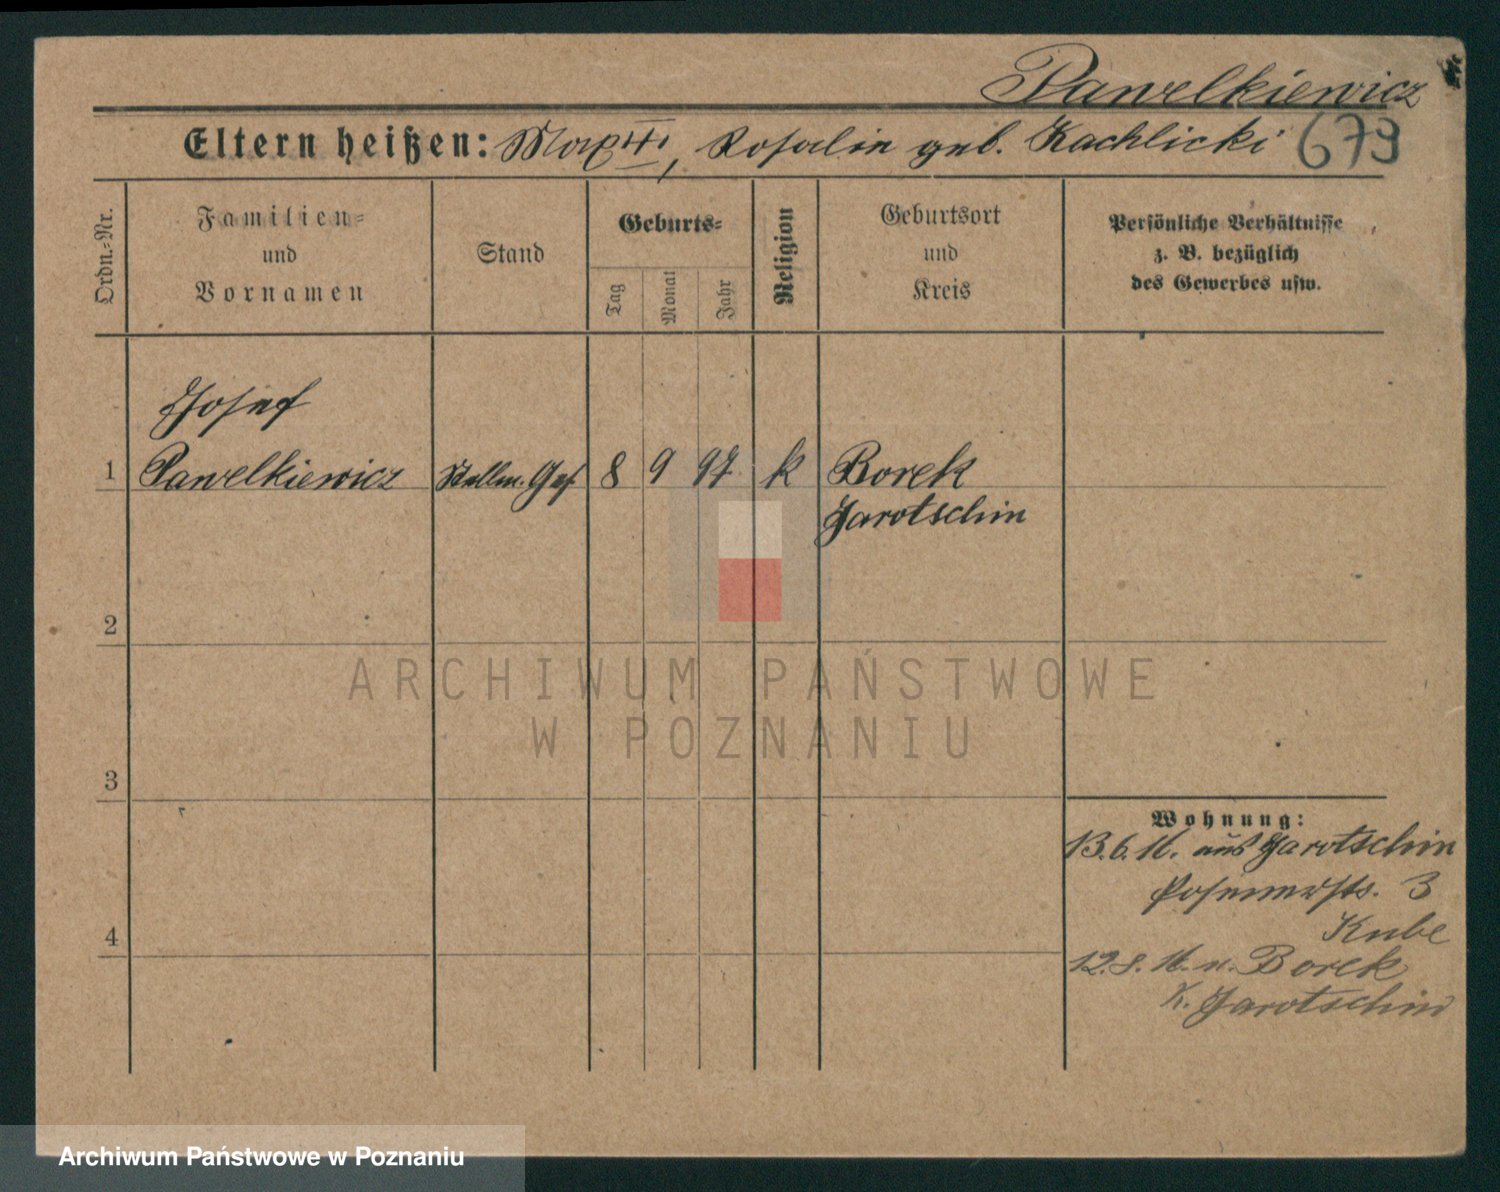 Pawelkiewicz
Eltern heißen: Rosalie geb. Kachlicki 679
Ordn.-Nr.
Familien-
und
Vornamen
Stand
Geburts-
Tag
Monat
Jahr
Religion
Geburtsort
und
Kreis
Persönliche Verhältnisse
z. B. bezüglich
des Gewerbes usw.
Josef
1 Pawelkiewicz Stellm. Ges. 8 9 97 k Borek
Jarotschin
2
3
Wohnung:
13.6.16. aus Jarotschin
Posenerstr. 3
Kube
4
12.8.16. n. Borek
K. Jarotschin
ARCHIWUM PAŃSTWOWE
W POZNANIU
Archiwum Państwowe w Poznaniu